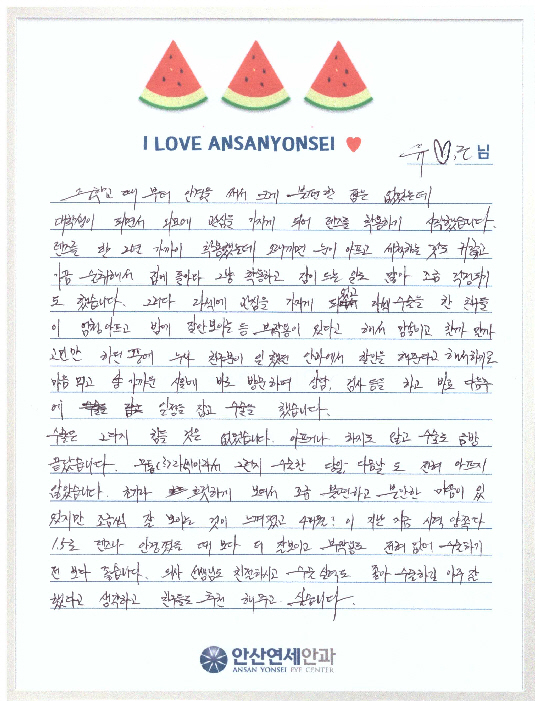 I LOVE ANSANYONSEI
유♡준 님
초등학교 때 부터 안경을 써서 크게 불편한 점은 없었는데
대학생이 되면서 외모에 관심을 가지게 되어 렌즈를 착용하기 시작했습니다.
렌즈를 한 2년 가까이 착용했는데 오래끼면 눈이 아프고 세척하는 것도 귀찮고
가끔 술취해서 집에 돌아다 그냥 착용하고 잠이 드는 일도 많아 조금 걱정되기
도 했습니다. 그러다 라섹에 관심을 가지게 되었고 라섹수술을 한 친구들
이 엄청 아프고 밤에 잘안보이는 등 부작용이 있다고 해서 망설이고
고민만 하던 도중에 누나 친구분이 일했던 안과에서 할인을 해준다고 해서
마음 먹고 시일에 바로 방문하여 상담, 검사 등을 하고 바로 다음주
에 일정을 잡고 수술을 했습니다.
수술은 그다지 힘들 것은 없었습니다. 아프거나 하지도 않고 수술도 금방
끝났습니다. 라섹이라서 그런지 수술한 당일, 다음날 도 전혀 아프지
않았습니다. 초기라 흐릿하게 보여서 조금 불편하고 불안한 마음이 있
었지만 조금씩 잘 보이는 것이 느껴졌고 4개월? 이 지난 지금 시력 양쪽다
1.5로 렌즈나 안경꼈을 때 보다 더 잘보이고 부작용도 전혀 없어 수술하기
전 보다 좋습니다. 의사 선생님도 친절하시고 수술 실력도 좋아 수술하길 아주 잘
했다고 생각하고 친구들도 추천 해주고 싶습니다.
안산연세안과
ANSAN YONSEI EYE CENTER